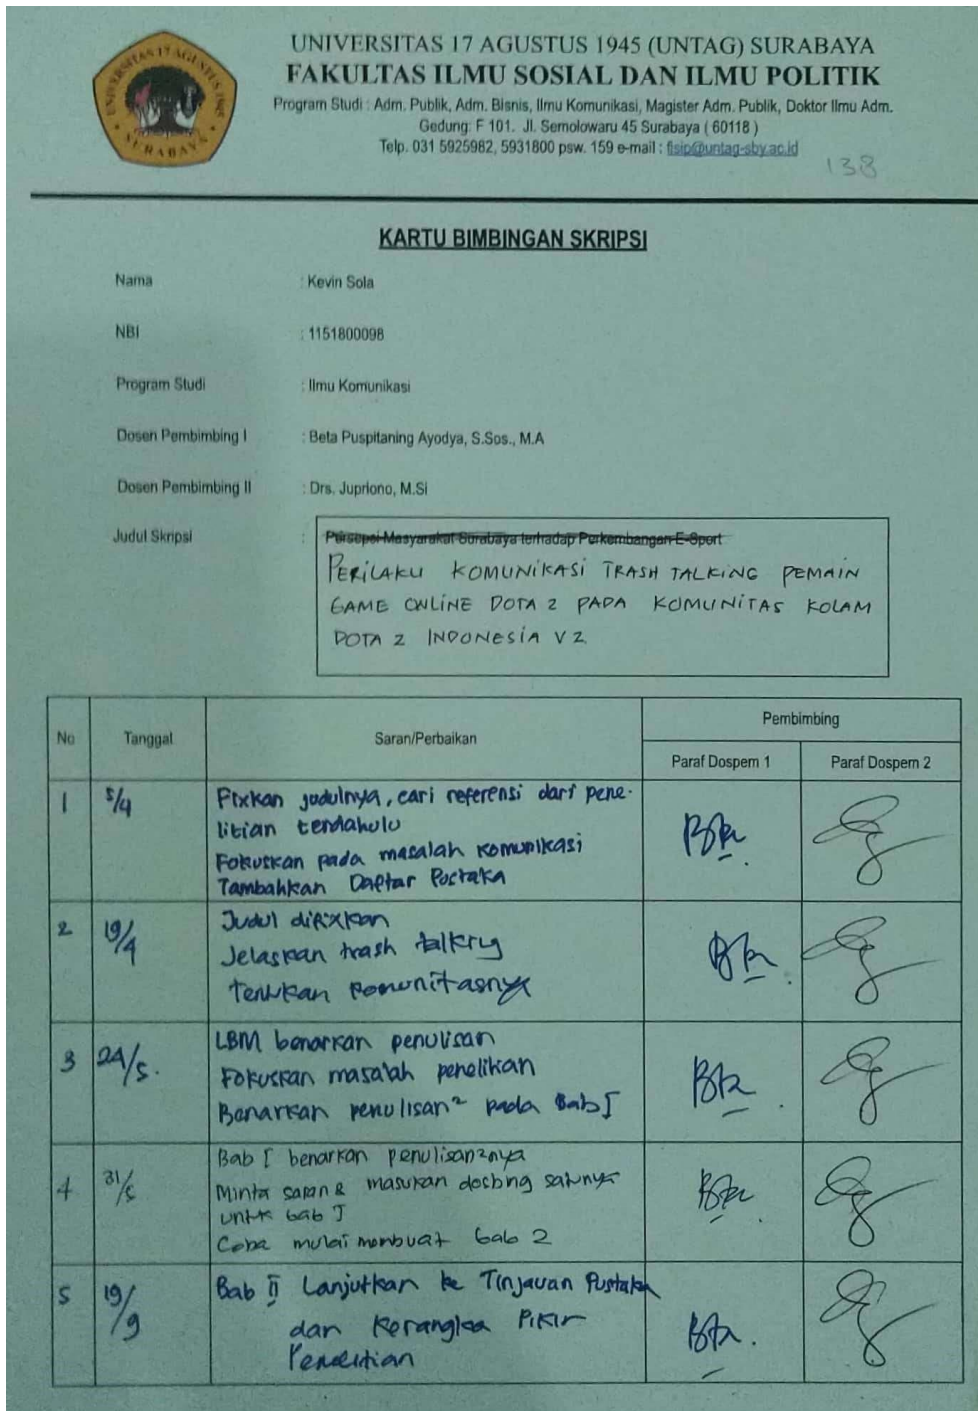 UNIVERSITAS 17 AGUSTUS 1945
SURABAYA
UNIVERSITAS 17 AGUSTUS 1945 (UNTAG) SURABAYA
FAKULTAS ILMU SOSIAL DAN ILMU POLITIK
Program Studi : Adm. Publik, Adm. Bisnis, Ilmu Komunikasi, Magister Adm. Publik, Doktor Ilmu Adm.
Gedung: F 101. Jl. Semolowaru 45 Surabaya ( 60118 )
Telp. 031 5925982, 5931800 psw. 159 e-mail : fisip@untag-sby.ac.id
138
KARTU BIMBINGAN SKRIPSI
Nama : Kevin Sola
NBI : 1151800098
Program Studi : Ilmu Komunikasi
Dosen Pembimbing I : Beta Puspitaning Ayodya, S.Sos., M.A
Dosen Pembimbing II : Drs. Jupriono, M.Si
Judul Skripsi : Persepsi Masyarakat Surabaya terhadap Perkembangan E-Sport
PERILAKU KOMUNIKASI TRASH TALKING PEMAIN
GAME ONLINE DOTA 2 PADA KOMUNITAS KOLAM
DOTA 2 INDONESIA V2
No Tanggal Saran/Perbaikan Pembimbing
Paraf Dospem 1 Paraf Dospem 2
1 5/4 Fixkan judulnya, cari referensi dari pene-
litian terdahulu
Fokuskan pada masalah komunikasi
Tambahkan Daftar Pustaka
2 19/4 Judul difixkan
Jelaskan trash talking
Tentukan komunitasnya
3 24/5. LBM benarkan penulisan
Fokuskan masalah penelitian
Benarkan penulisan² pada Bab I
4 31/5 Bab I benarkan penulisan2nya
Minta saran & masukan dosbing satunya
untk bab I
Coba mulai membuat bab 2
5 19/9 Bab II Lanjutkan ke Tinjauan Pustaka
dan Kerangka Pikir
Penelitian